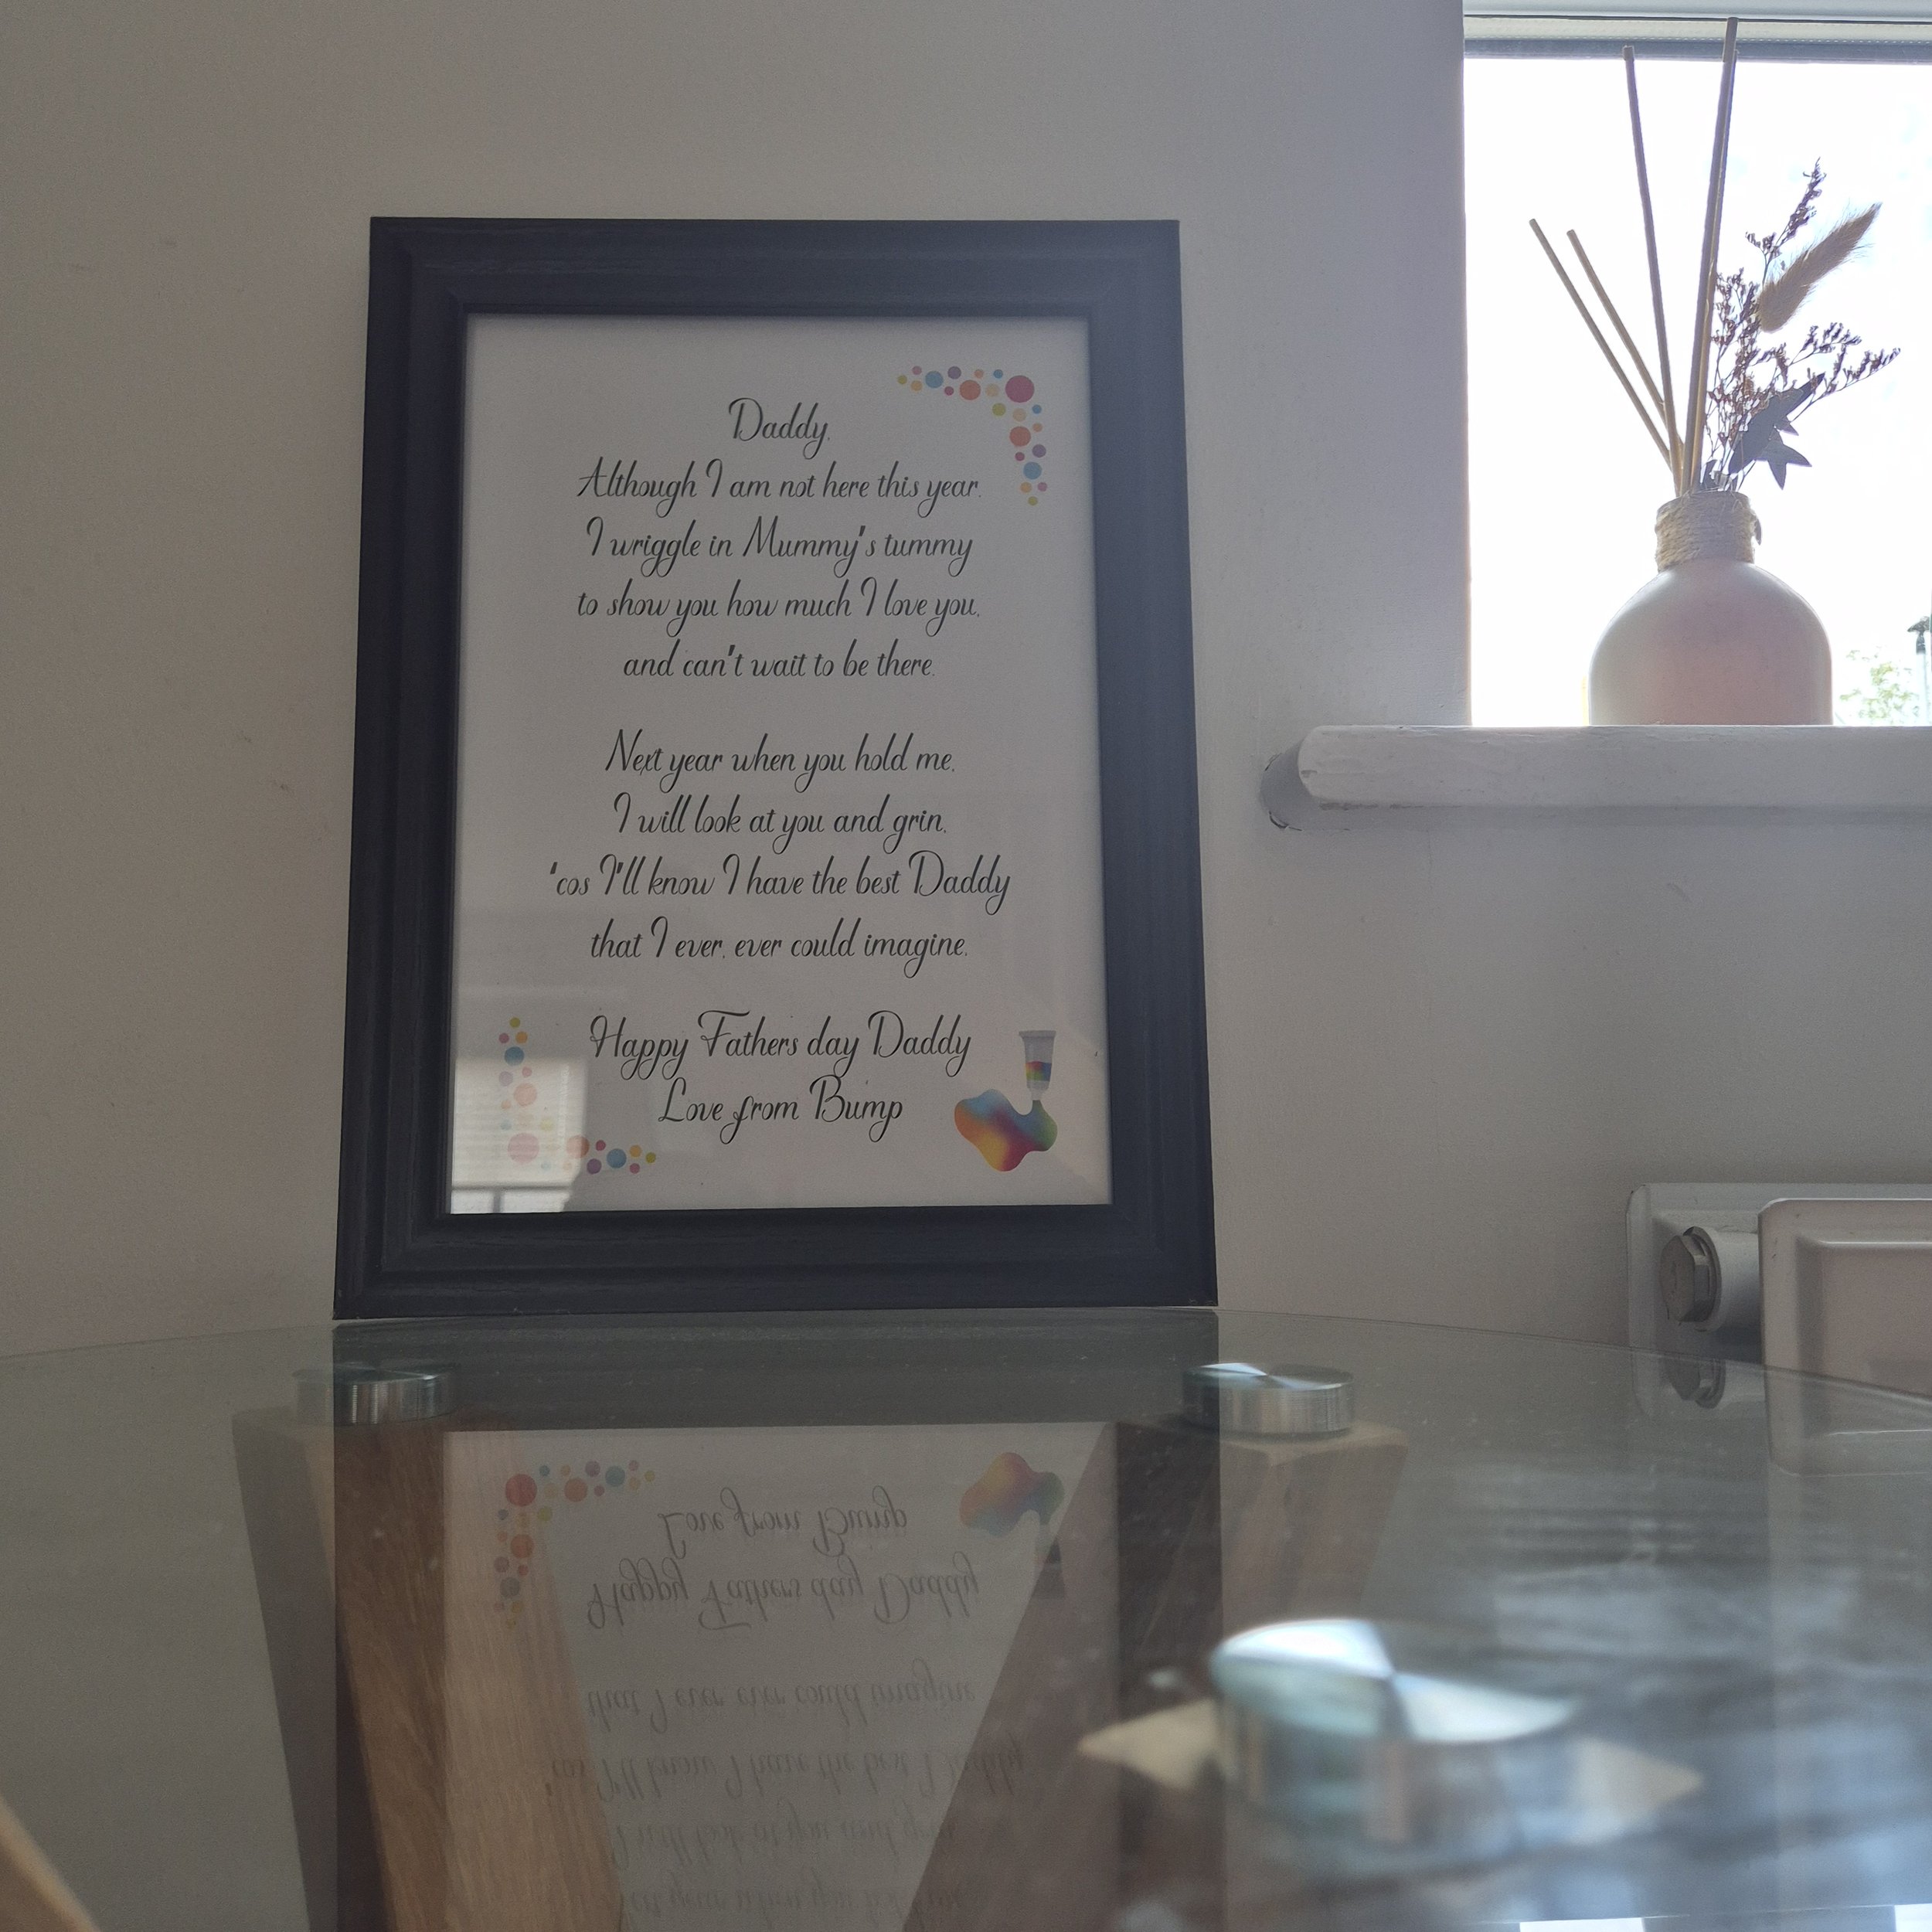 Daddy,
Although I am not here this year,
I wriggle in Mummy's tummy
to show you how much I love you,
and can't wait to be there.
Next year when you hold me,
I will look at you and grin,
'cos I'll know I have the best Daddy
that I ever, ever could imagine.
Happy Fathers day Daddy
Love from Bump